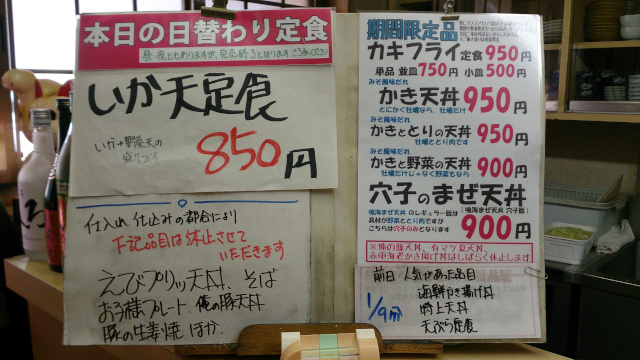 本日の日替わり定食
昼夜ともありますが、完売終了となります ご了承ください
いか天定食
いか+野菜天の
盛りです
850円
仕入れ、仕込みの都合により
下記品目は休止させて
いただきます
えびプリッツ天丼、そば
お子様プレート、俺の豚天丼
豚の生姜焼 ほか、
期間限定品
カキフライ定食950円
単品 並皿750円 小皿500円
みそ風味だれ
かき天丼950円
とにかく牡蠣なら、牡蠣だけ
みそ風味だれ
かきととりの天丼950円
牡蠣ととり肉です
みそ風味だれ
かきと野菜の天丼900円
牡蠣だけじゃなく野菜もなら
穴子のまぜ天丼
鳴海まぜ天丼 のレギュラー版は
具材が野菜ととり肉ですが
こちらは穴子のみとなります
[鳴海まぜ天丼 穴子版]
900円
※俺の豚天丼、有マツ夏天丼、
赤車海老かき揚げ丼はしばらく休止します
前日 人気があった品目
1/9
海鮮かき揚げ丼
特上天丼
天ぷら定食